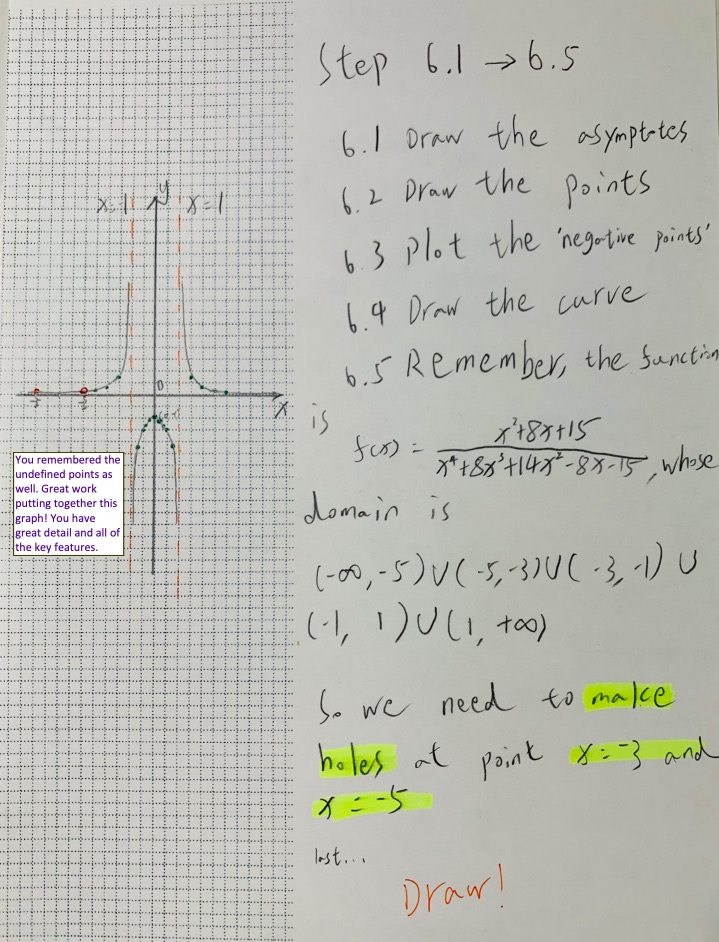 Step 6.1 → 6.5
6.1 Draw the asymptotes
6.2 Draw the points
6.3 Plot the 'negative points'
6.4 Draw the curve
6.5 Remember, the function
is f(x) = x²+8x+15 / x⁴+8x³+14x²-8x-15, whose
domain is
(-∞,-5)∪(-5,-3)∪(-3,-1)∪
(-1, 1)∪(1, +∞)
So we need to make
holes at point x=-3 and
x=-5
last...
Draw!
x=-1 y x=1
0
-5 -3 x
You remembered the
undefined points as
well. Great work
putting together this
graph! You have
great detail and all of
the key features.